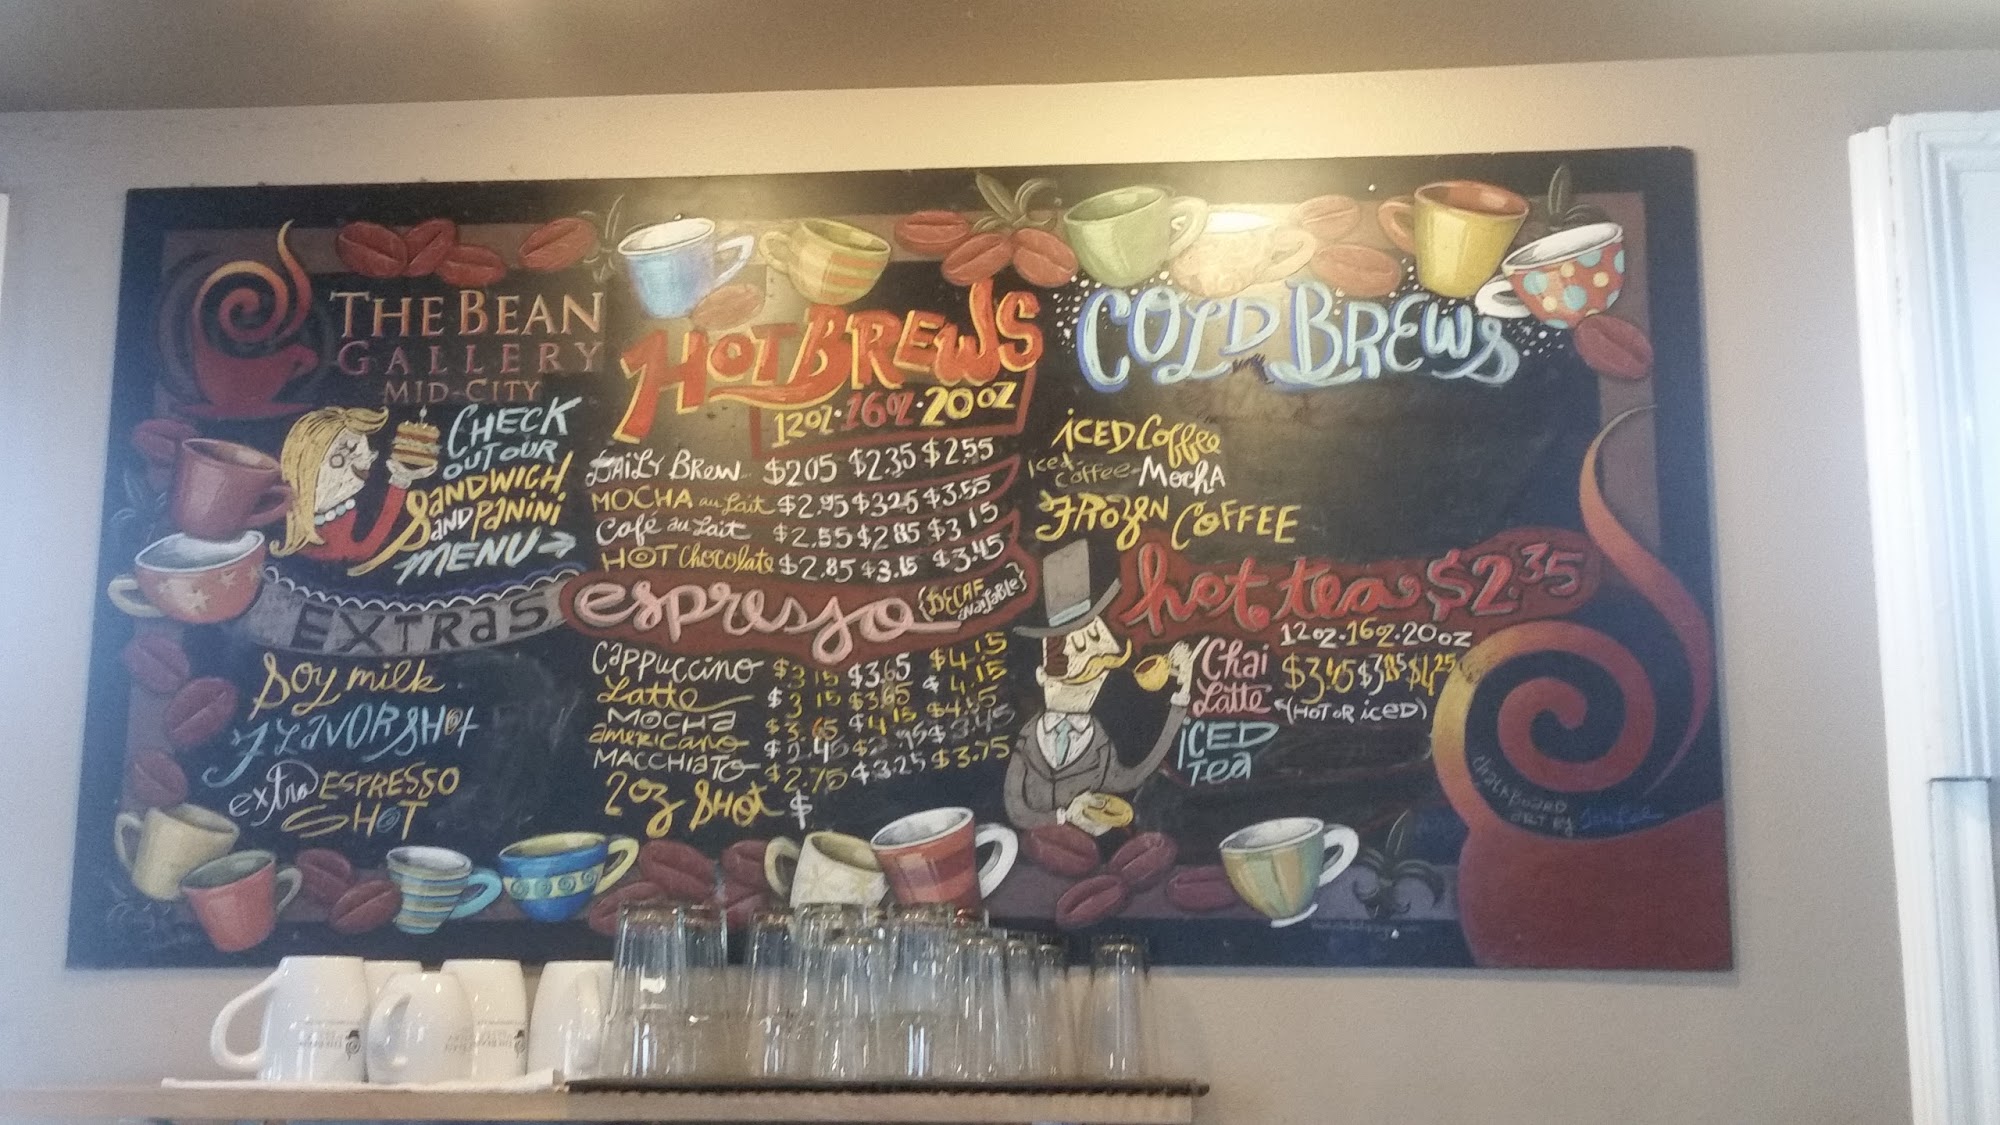 THE BEAN
GALLERY
MID-CITY
CHECK
OUT OUR
SANDWICH
AND PANINI
MENU →
EXTRAS
Soy milk
FLAVOR SHOT
extra ESPRESSO
SHOT
HOT BREWS
12oz · 16oz · 20oz
DAILY BREW $2.05 $2.35 $2.55
MOCHA au Lait $2.95 $3.25 $3.55
Café au Lait $2.55 $2.85 $3.15
HOT Chocolate $2.85 $3.15 $3.45
espresso {DECAF AVAILABLE}
Cappuccino $3.15 $3.65 $4.15
Latte $3.15 $3.65 $4.15
MOCHA $3.65 $4.15
americano $2.45 $3.45
MACCHIATO $2.75 $3.25 $3.75
2oz SHOT $
COLD BREWS
iCED Coffee
Iced Coffee Mocha
FROZEN COFFEE
hot tea $2.35
12oz · 16oz · 20oz
Chai Latte $3.45 $3.85 $4.25
(HOT OR iCED)
iCED
Tea
CHALKBOARD
ART BY